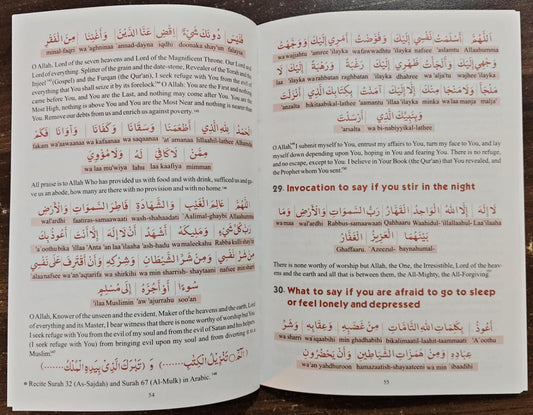 فَلَيْسَ دُونَكَ شَيْءٌ، اِقْضِ عَنَّا الدَّيْنَ وَأَغْنِنَا مِنَ الْفَقْرِ
minal-faqri wa 'aghninaa annad-dayna iqdhi doonaka shay'un falaysa
O Allah, Lord of the seven heavens and Lord of the Magnificent Throne. Our Lord and
Lord of everything. Splitter of the grain and the date-stone, Revealer of the Torah and the
Injeel (Gospel) and the Furqan (the Qur'an), I seek refuge with You from the evil of
everything that You shall seize it by its forelock. O Allah: You are the First and nothing
came before You, and You are the Last, and nothing may come after You. You are the
Most High, nothing is above You and You are the Most Near and nothing is nearer than
You. Remove our debts from us and enrich us against poverty.
اَلْحَمْدُ لِلَّهِ الَّذِي أَطْعَمَنَا وَسَقَانَا وَكَفَانَا وَآوَانَا فَكَمْ
fakam wa'aawaanaa wa kafaanaa wa saqaanaa 'at'amanaa lillaahil-lathee Alhamdu
مِمَّنْ لَا كَافِيَ لَهُ وَلَا مُؤْوِيَ
wa laa mu'wiya lahu laa kaafiya mimman
All praise is to Allah Who has provided us with food and with drink, sufficed us and ga-
ve us an abode, how many are there with no provision and with no home.
اَللَّهُمَّ عَالِمَ الْغَيْبِ وَالشَّهَادَةِ فَاطِرَ السَّمَوَاتِ وَالْأَرْضِ
wal'ardhi faatiras-samaawaati wash-shahaadati 'Aalimal-ghaybi Allaahumma
رَبَّ كُلِّ شَيْءٍ وَمَلِيكَهُ أَشْهَدُ أَنْ لَا إِلَهَ إِلَّا أَنْتَ أَعُوذُ بِكَ
'a'oothu bika 'illaa 'Anta 'an laa 'ilaaha 'ash-hadu wa maleekahu Rabba kulli shay'in
مِنْ شَرِّ نَفْسِي وَمِنْ شَرِّ الشَّيْطَانِ وَشِرْكِهِ وَأَنْ أَقْتَرِفَ عَلَى نَفْسِي
'alaa nafsee wa'an 'aqtarifa wa shirkihi wa min sharrish-shaytaani nafsee min sharri
سُوءًا أَوْ أَجُرَّهُ إِلَى مُسْلِمٍ
'ilaa Muslimin 'aw 'ajurrahu soo'an
O Allah, Knower of the unseen and the evident, Maker of the heavens and the earth, Lord
of everything and its Master, I bear witness that there is none worthy of worship but You.
I seek refuge with You from the evil of my soul and from the evil of Satan and his helpers.
(I seek refuge with You) from bringing evil upon my soul and from harming any
Muslim.
(الٓمٓ تَنْزِيلُ الْكِتَبِ........) وَ (تَبَرَكَ الَّذِي بِيَدِهِ الْمُلْكُ.......)
Recite Surah 32 (As-Sajdah) and Surah 67 (Al-Mulk) in Arabic.
54
اَللَّهُمَّ أَسْلَمْتُ نَفْسِي إِلَيْكَ وَفَوَّضْتُ أَمْرِي إِلَيْكَ وَوَجَّهْتُ
wawajjahtu 'ilayka 'amree wafawwadhtu 'ilayka nafsee 'aslamtu Allaahumma
وَجْهِي إِلَيْكَ وَأَلْجَأْتُ ظَهْرِي إِلَيْكَ رَغْبَةً وَرَهْبَةً إِلَيْكَ لَا
laa 'ilayka wa rahbatan raghbatan 'ilayka thahree wa'alja'tu 'ilayka wajhee
مَلْجَأَ وَلَا مَنْجَا مِنْكَ إِلَّا إِلَيْكَ آمَنْتُ بِكِتَابِكَ الَّذِي أَنْزَلْتَ
'anzalta bikitaabikal-lathee 'aamantu 'illaa 'ilayka minka wa laa manja malja'
وَبِنَبِيِّكَ الَّذِي أَرْسَلْتَ
'arsalta wa bi-nabiyyikal-lathee
O Allah, I submit myself to You, entrust my affairs to You, turn my face to You, and lay
myself down depending upon You, hoping in You and fearing You. There is no refuge,
and no escape, except to You. I believe in Your Book (the Qur'an) that You revealed, and
the Prophet whom You sent.
29. Invocation to say if you stir in the night
لَا إِلَهَ إِلَّا اللَّهُ الْوَاحِدُ الْقَهَّارُ رَبُّ السَّمَوَاتِ وَالْأَرْضِ وَمَا
wa maa wal'ardhi Rabbus-samaawaati Waahidul-Qahhaaru 'illallaahul Laa 'ilaaha
بَيْنَهُمَا الْعَزِيزُ الْغَفَّارُ
Ghaffaaru. 'Azeezul- baynahumal-
There is none worthy of worship but Allah, the One, the Irresistible, Lord of the heav-
ens and the earth and all that is between them, the All-Mighty, the All-Forgiving.
30. What to say if you are afraid to go to sleep
or feel lonely and depressed
أَعُوذُ بِكَلِمَاتِ اللَّهِ التَّامَّاتِ مِنْ غَضَبِهِ وَعِقَابِهِ وَشَرِّ
wa sharri wa 'iqaabihi min ghadhabihi bikalimaatil-laahit-taammaati 'A'oothu
عِبَادِهِ وَمِنْ هَمَزَاتِ الشَّيَاطِينِ وَأَنْ يَحْضُرُونِ
wa'an yahdhuroon hamazaatish-shayaateeni wa min 'ibaadihi
55